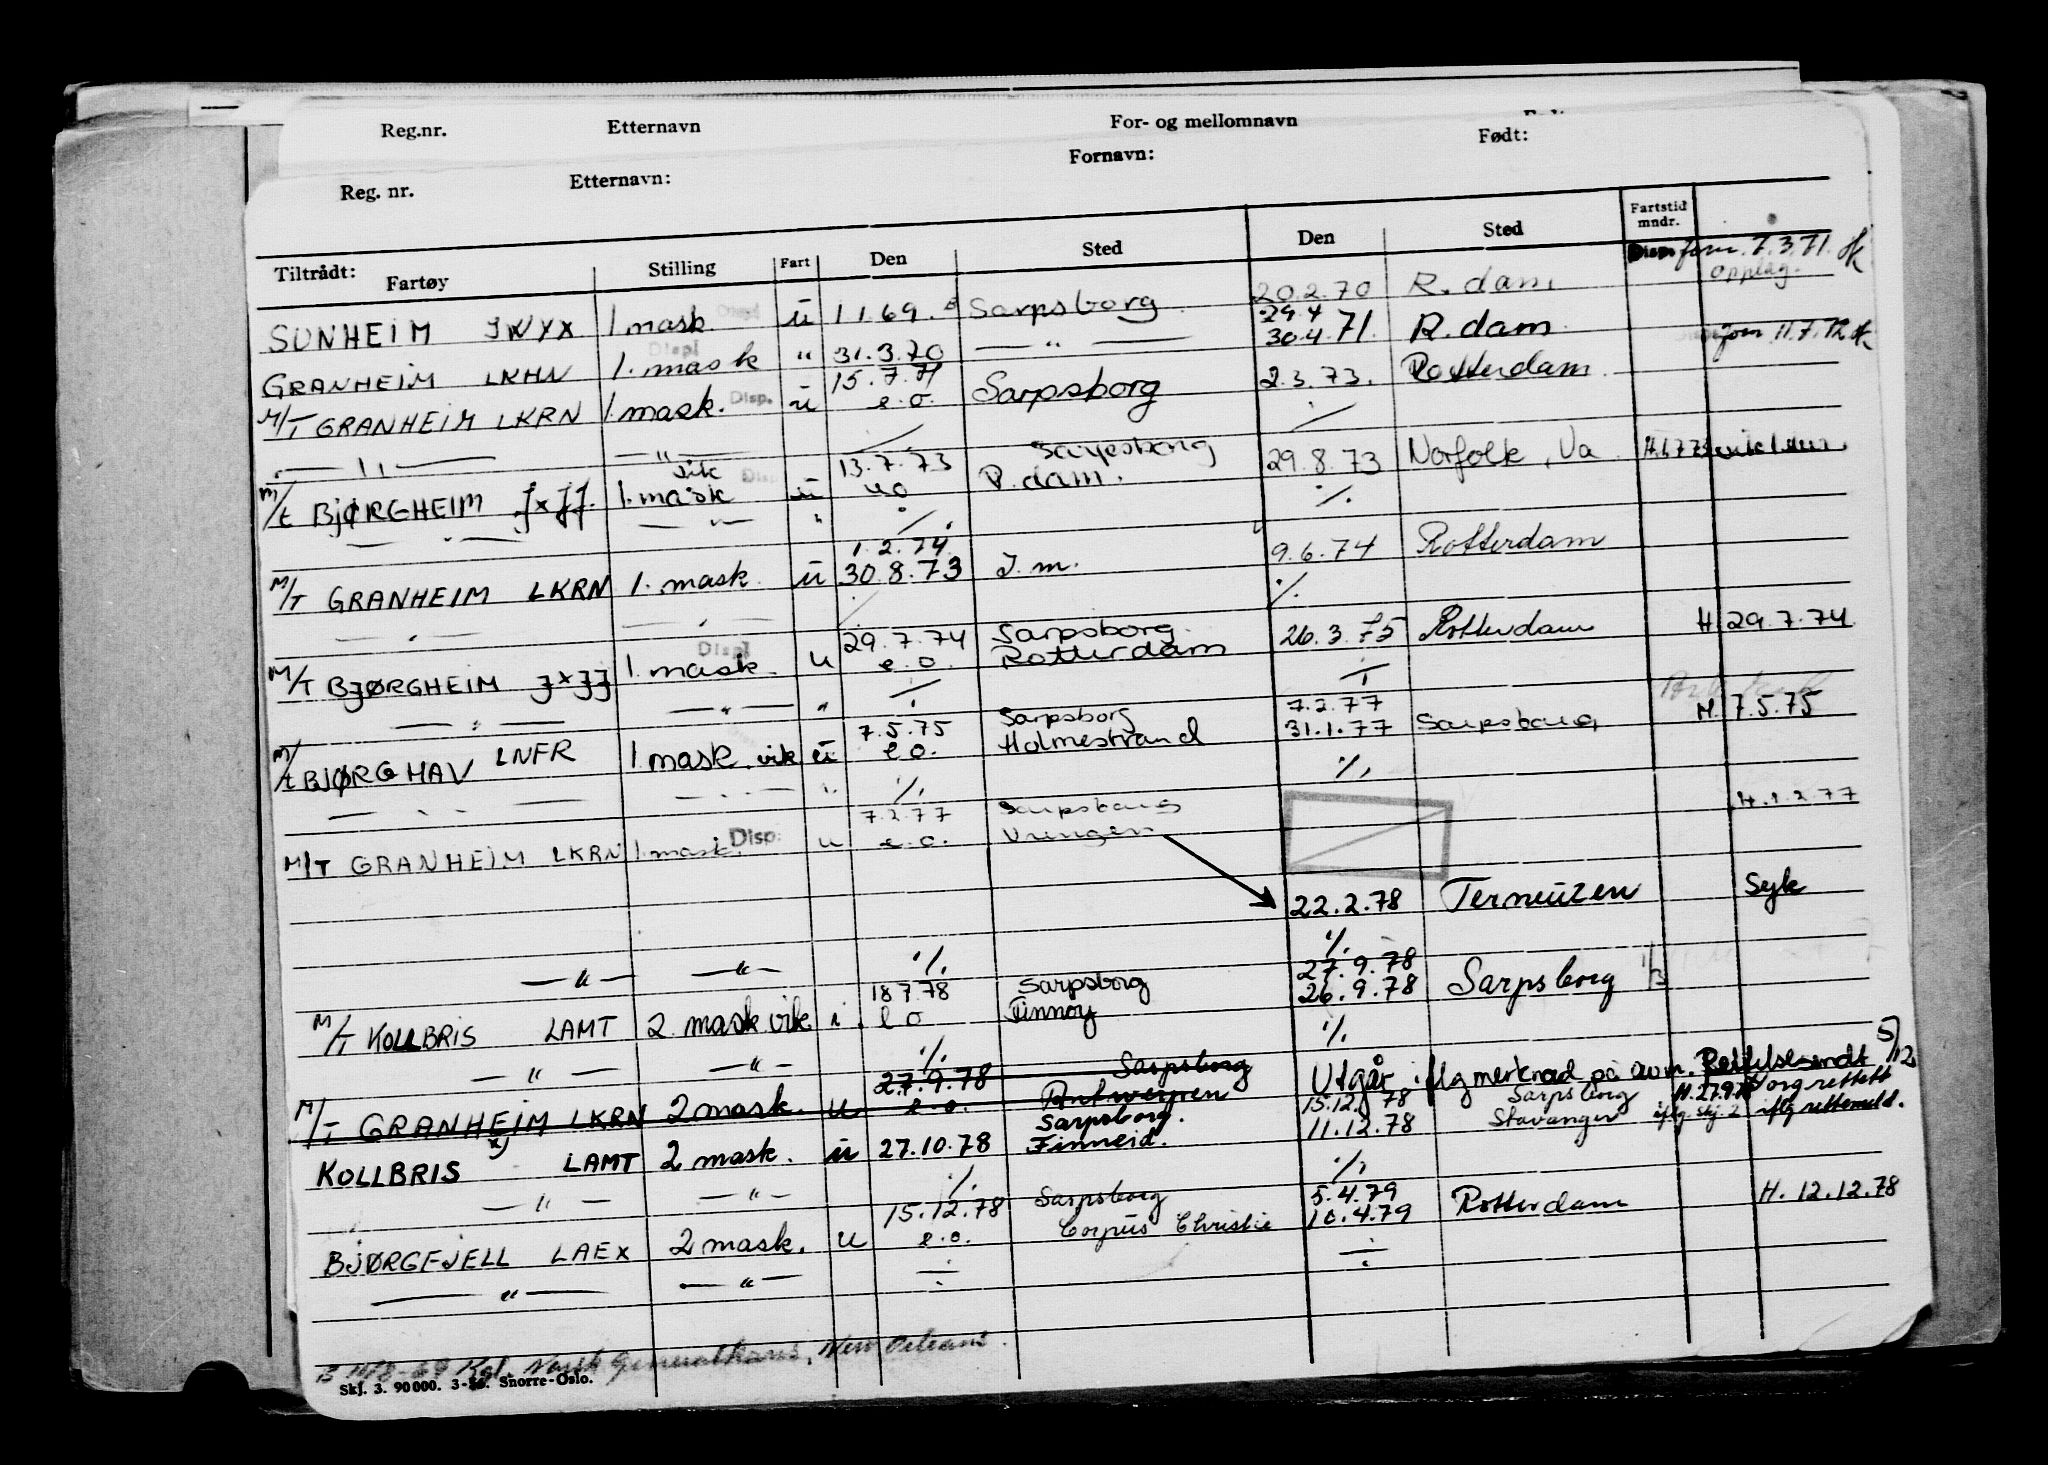 Reg.nr. Etternavn For- og mellomnavn
Reg. nr. Etternavn: Fornavn: Født:
Tiltrådt: Fartøy Stilling Fart Den Sted Den Sted Fartstid mndr.
Disp. 7.3.71.
opplag.
20.2.70 R.dam.
SUNHEIM JWYX 1 mask Displ ü 1 1.69. Sarpsborg 29.4
30.4.71. R.dam
GRANHEIM LKHN 1. mask Displ " 31.3.70 — " — 11.7.72
15.7.71 2.3.73. Rotterdam
M/T GRANHEIM LKRN 1.mask. Disp. ü e.o. Sarpsborg ⁒
— " — — " —
13.7.73 Sarpsborg 29.8.73 Norfolk, Va
M/t BJØRGHEIM JXJJ. 1. mask vik Disp ü uo R.dam. ⁒
— " — — " — " ⁒
1.2.74. 9.6.74 Rotterdam
M/T GRANHEIM LKRN 1. mask. ü 30.8.73 J.m. ⁒
— " — — " —
29.7.74 Sarpsborg. 26.3.75 Rotterdam H. 29.7.74
M/T BJØRGHEIM JXJJ 1. mask. Displ u e.o. Rotterdam ⁒
— " — — " — " ⁒ 7.2.77
7.5.75 Sarpsborg 31.1.77 Sarpsborg H. 7.5.75
M/t BJØRGHAV LNFR 1. mask. vik ü e.o. Holmestrand
— " — — " — " ⁒ ⁒
7.2.77 Sarpsborg H.1.2.77
M/T GRANHEIM LKRN 1.mask. Disp: u e.o. Vrengen
22.2.78 Terneuzen Syk
— " — — " — ⁒ ⁒
27.9.78
18 7.78 Sarpsborg 26.9.78 Sarpsborg
M/T KOLLBRIS LAMT 2 mask vik. i. e o Finnøy ⁒
— " — — " — ⁒ 5/12
27.9.78 Sarpsborg Utgår iflg merknad på avm. Rettelse sendt
M/T GRANHEIM LKRN 2 mask. u e.o. Antwerpen 15.12.78 Sarpsborg H.27.9.78 org rettett
Sarpsborg. 11.12.78 Stavanger iflg. skj. 2 iflg rettemeld.
KOLLBRIS x) LAMT 2 mask. ü 27.10.78 Finneid.
— " — — " — ⁒ ⁒
15.12.78 Sarpsborg 5.4.79 Rotterdam H. 12.12.78
10.4.79
BJØRGFJELL LAEX 2 mask. u e.o. Corpus Christie
— " — — " — ÷ ÷
Kgl. Norsk Generalkons., New Orleans.
Skj. 3. 90000. Snorre-Oslo.